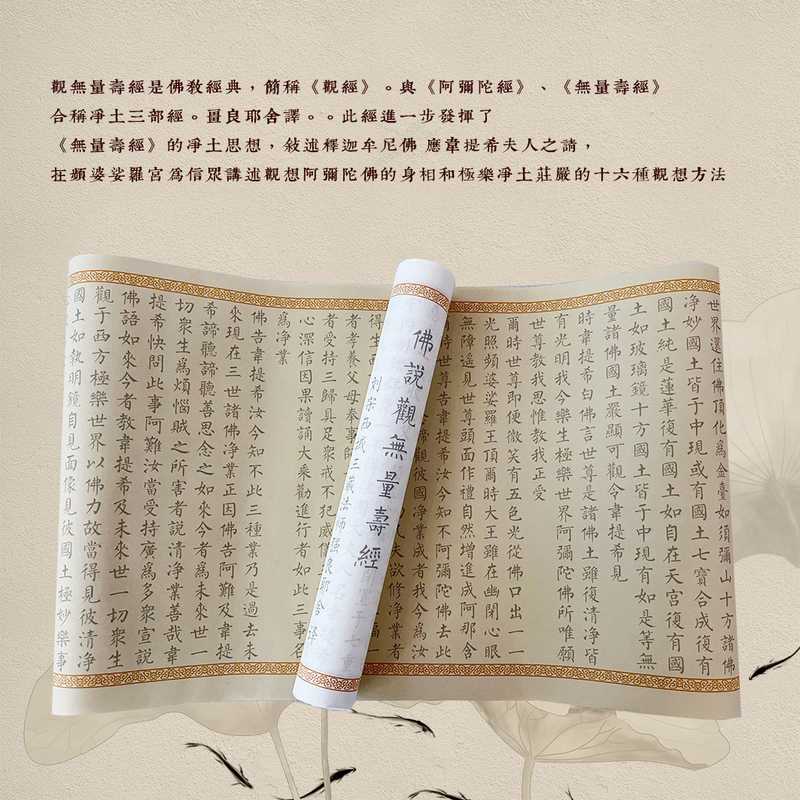 觀無量壽經是佛敎經典，簡稱《觀經》。與《阿彌陀經》、《無量壽經》
合稱凈土三部經。畺良耶舍譯。。此經進一步發揮了
《無量壽經》的凈土思想，敘述釋迦牟尼佛 應韋提希夫人之請，
在頻婆娑羅宮爲信眾講述觀想阿彌陀佛的身相和極樂凈土莊嚴的十六種觀想方法
世界還住佛頂化爲金臺如須彌山十方諸佛
净妙國土皆于中現或有國土七寶合成復有
國土純是蓮華復有國土如自在天宮復有國
土如玻璃鏡十方國土皆于中現有如是等無
量諸佛國土嚴顯可觀令韋提希見
時韋提希白佛言世尊是諸佛土雖復清净皆
有光明我今樂生極樂世界阿彌陀佛所唯願
世尊教我思惟教我正受
爾時世尊即便微笑有五色光從佛口出一一
光照頻婆娑羅王頂爾時大王雖在幽閉心眼
無障遥見世尊頭面作禮自然增進成阿那含
時世尊告韋提希汝今知不阿彌陀佛去此
諦觀彼國净業成者我今爲汝
凡夫欲修净業者
佛說觀無量壽經
劉宋西域三藏法師彊良耶舍譯
得生
者孝養父母奉事師
者受持三歸具足衆戒不犯威儀
心深信因果讀誦大乘勸進行者如此三事名
爲净業
佛告韋提希汝今知不此三種業乃是過去未
來現在三世諸佛净業正因佛告阿難及韋提
希諦聽諦聽善思念之如來今者爲未來世一
切衆生爲煩惱賊之所害者說清净業善哉韋
提希快問此事阿難汝當受持廣爲多衆宣說
佛語如來今者教韋提希及未來世一切衆生
觀于西方極樂世界以佛力故當得見彼清净
國土如執明鏡自見面像見彼國土極妙樂事